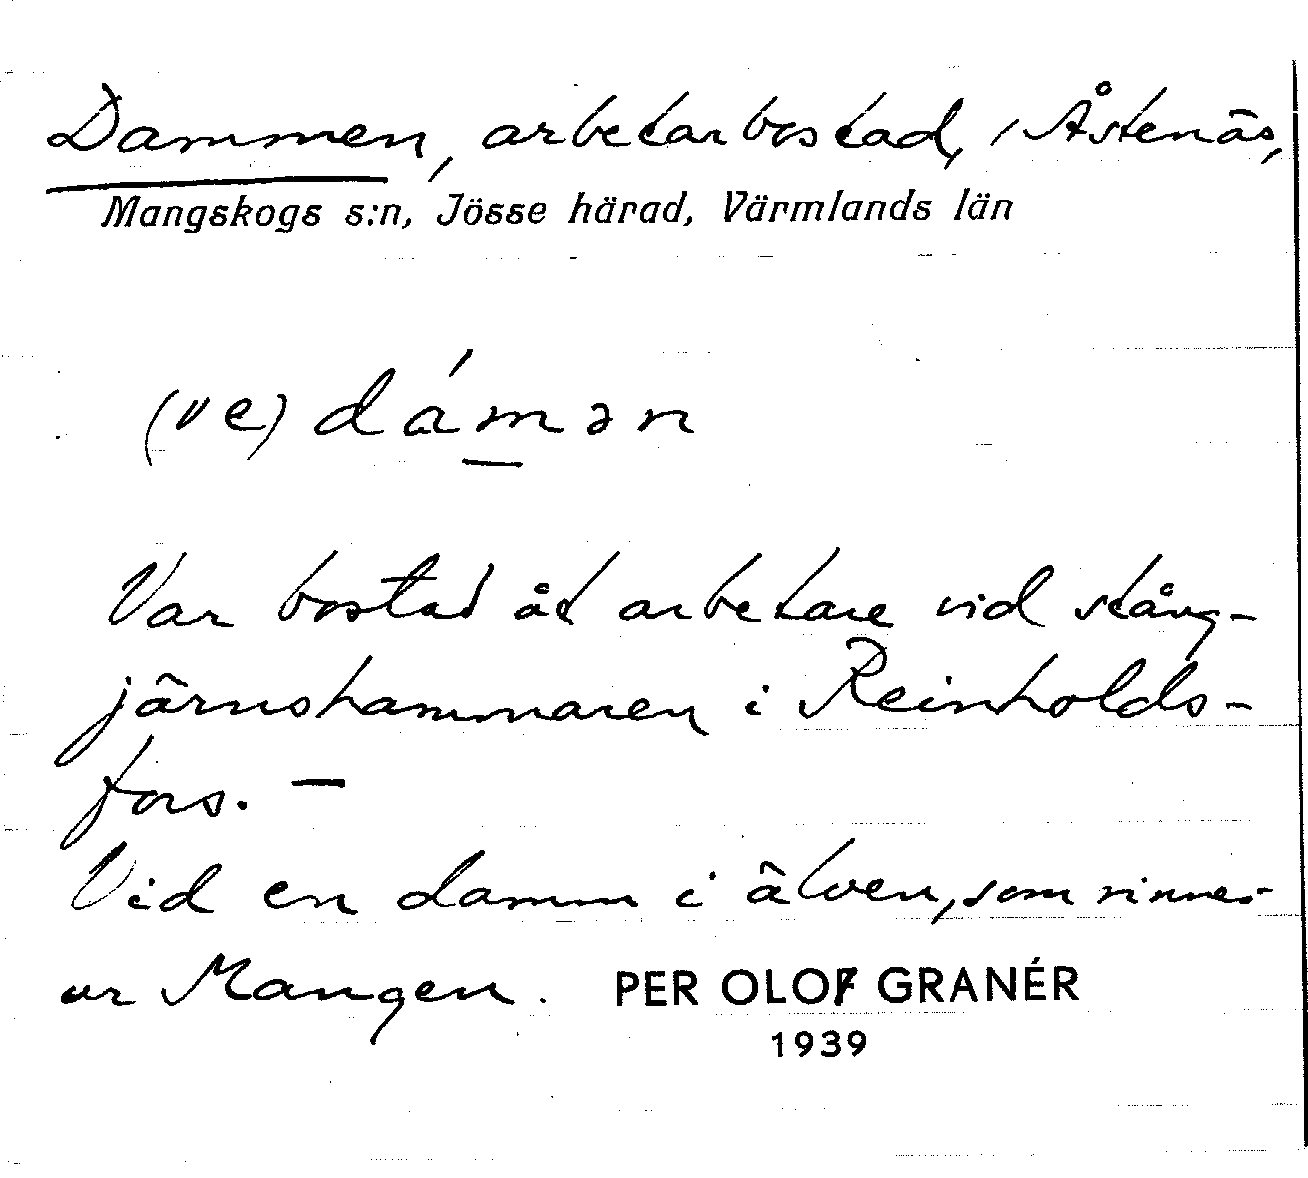 Dammen, arbetarbostad, i Åstenäs,
Mangskogs s:n, Jösse härad, Värmlands län
(ve) dámən
Var bostad åt arbetare vid stång-
järnshammaren i Reinholds-
fors. –
Vid en damm i älven, som rinner
ur Mangen.
PER OLOF GRANÉR
1939